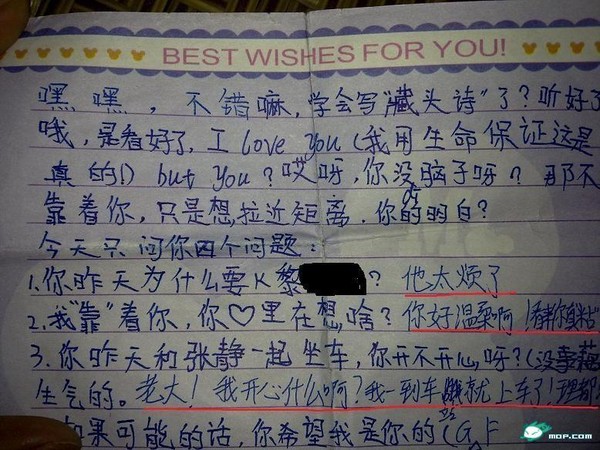 BEST WISHES FOR YOU!
嘿嘿，不错嘛，学会写"藏头诗"了？听好了
哦，是看好了，I love you（我用生命保证这是
真的!) but you？哎呀，你没脑子呀？那不
靠着你，只是想拉近距离．你的明白？
今天只问你四个问题：
1.你昨天为什么要K黎？他太烦了
2.我"靠"着你，你♡里在想啥？你好温柔啊！
3.你昨天和张静一起坐车，你开不开心呀？(没
生气的。老大！我开心什么啊？我一到车就上车了！理都
如果可能的话，你希望我是你的（G F
MOP.COM